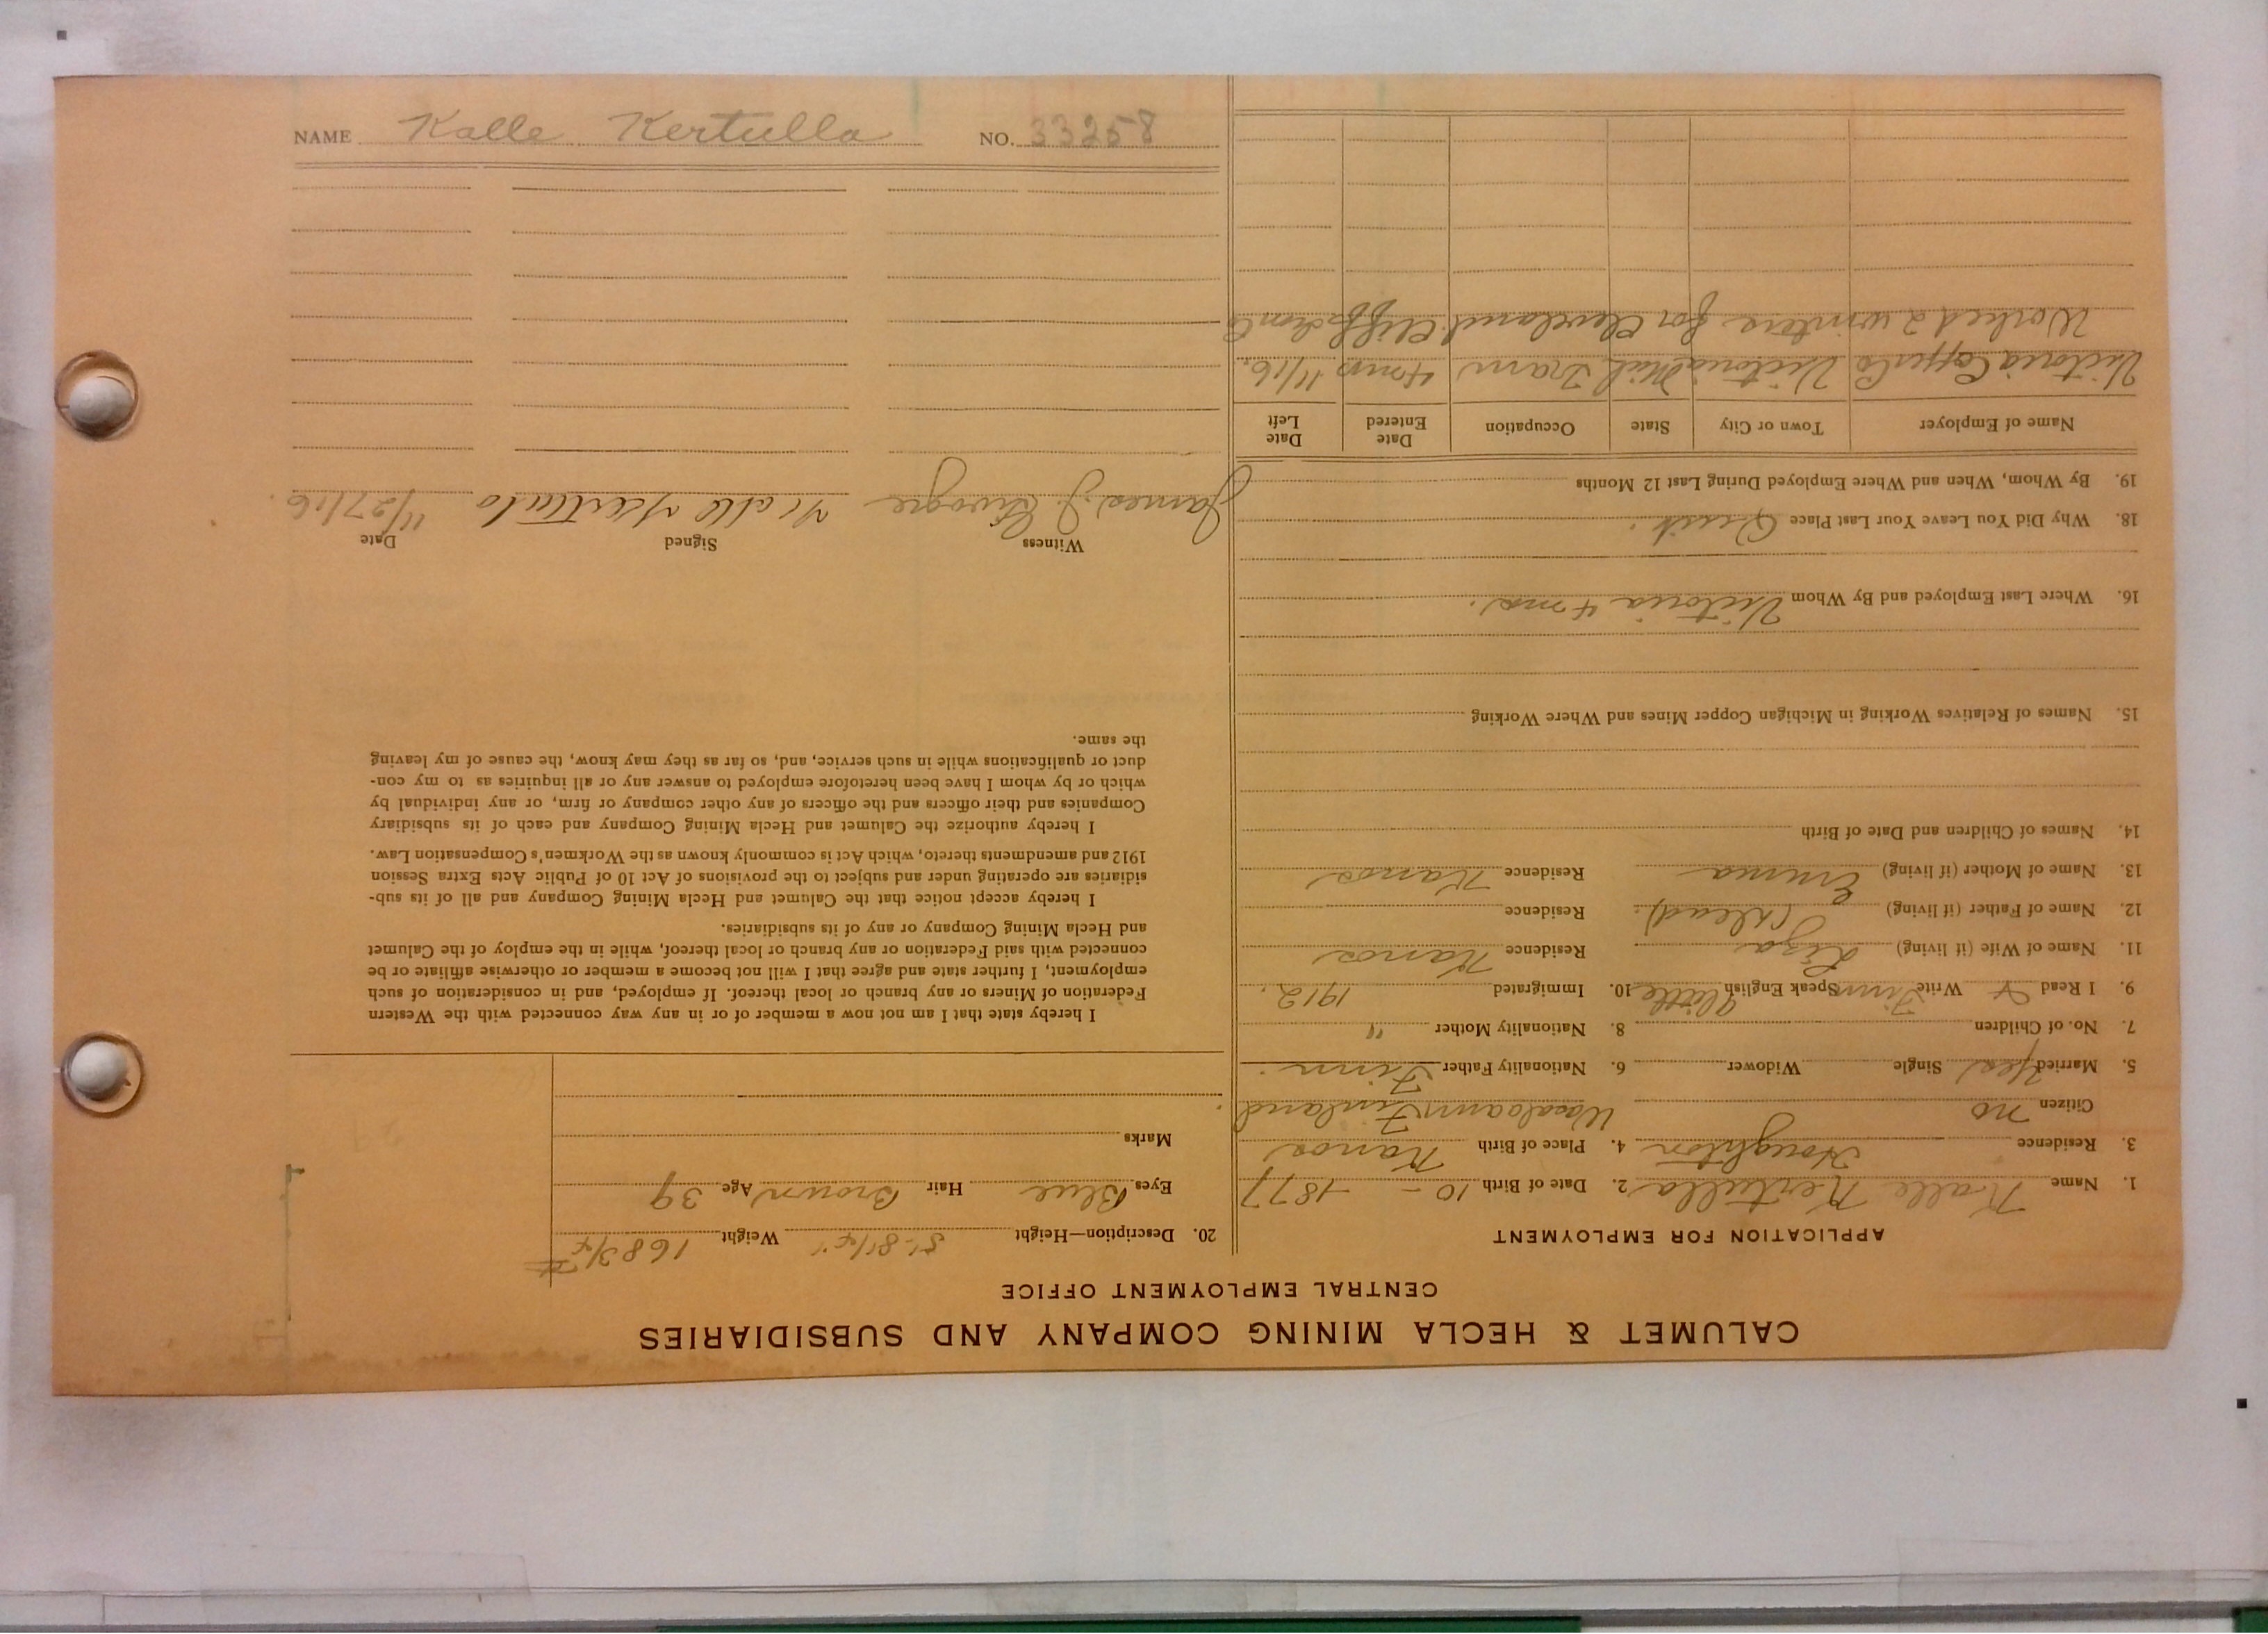 NAME Kalle Kertulla NO. 33258
CALUMET & HECLA MINING COMPANY AND SUBSIDIARIES
CENTRAL EMPLOYMENT OFFICE
APPLICATION FOR EMPLOYMENT
1. Name Kalle Kertulla 2. Date of Birth 10 - - 1877
3. Residence Houghton 4. Place of Birth Kanos
Citizen no Finland
5. Married Yes Single Widower 6. Nationality Father Finn.
7. No. of Children 8. Nationality Mother "
9. I Read & Write Finn Speak English little 10. Immigrated 1912.
11. Name of Wife (if living) Liza Residence Kanos
12. Name of Father (if living) (dead). Residence
13. Name of Mother (if living) Emma Residence Kanos
14. Names of Children and Date of Birth
15. Names of Relatives Working in Michigan Copper Mines and Where Working
16. Where Last Employed and By Whom Victoria 4 mos.
18. Why Did You Leave Your Last Place Quit.
19. By Whom, When and Where Employed During Last 12 Months
Name of Employer Town or City State Occupation Date Entered Date Left
Victoria Copper Co Victoria Mich Tram 4 mos 11/16.
Worked 2 winters for Cleveland Cliffs
20. Description—Height 5'-8 1/4" Weight 168 3/4 #
Eyes Blue Hair Brown Age 39
Marks
I hereby state that I am not now a member of or in any way connected with the Western
Federation of Miners or any branch or local thereof. If employed, and in consideration of such
employment, I further state and agree that I will not become a member or otherwise affiliate or be
connected with said Federation or any branch or local thereof, while in the employ of the Calumet
and Hecla Mining Company or any of its subsidiaries.
I hereby accept notice that the Calumet and Hecla Mining Company and all of its sub-
sidiaries are operating under and subject to the provisions of Act 10 of Public Acts Extra Session
1912 and amendments thereto, which Act is commonly known as the Workmen's Compensation Law.
I hereby authorize the Calumet and Hecla Mining Company and each of its subsidiary
Companies and their officers and the officers of any other company or firm, or any individual by
which or by whom I have been heretofore employed to answer any or all inquiries as to my con-
duct or qualifications while in such service, and, so far as they may know, the cause of my leaving
the same.
Witness Signed Date
James J. Kalle Kerttula 11/27/16.